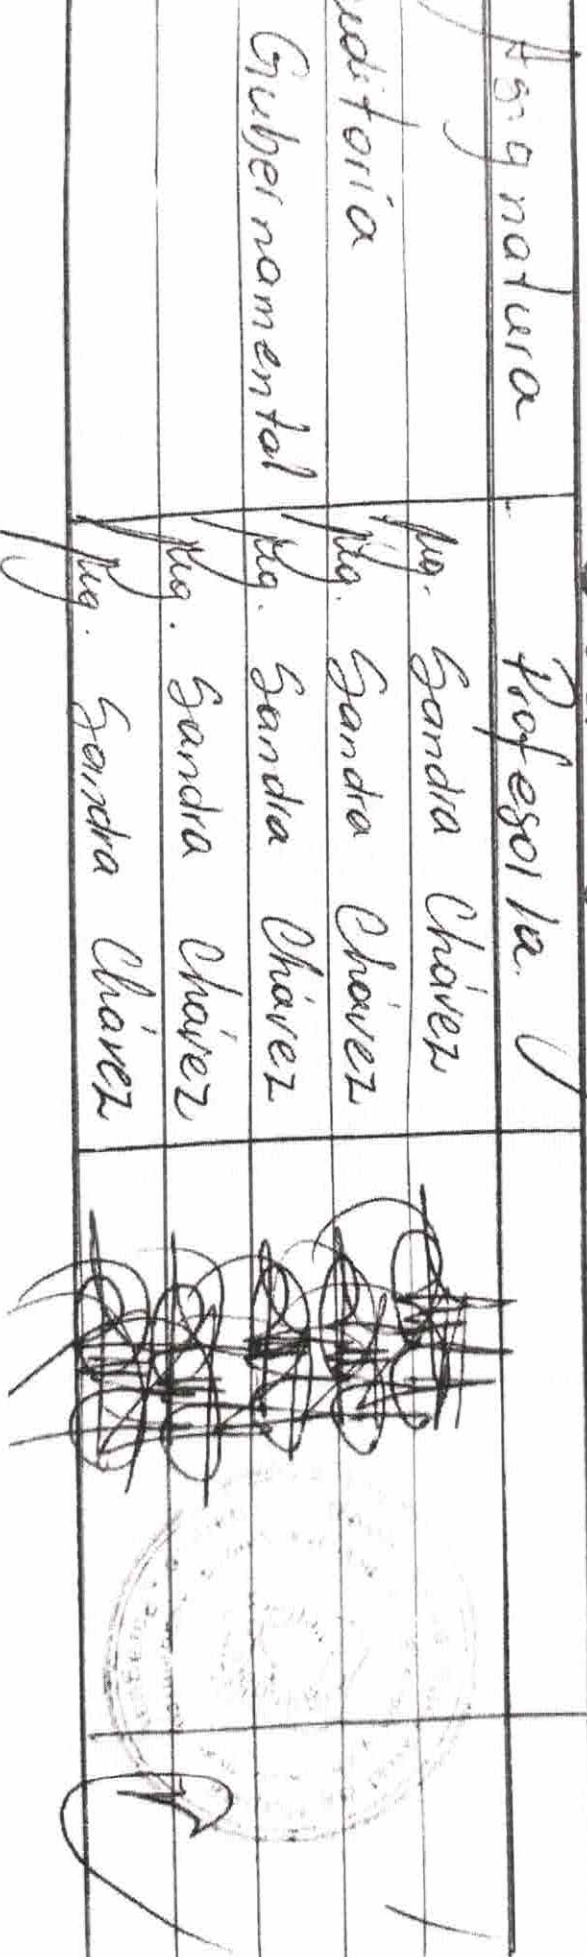 Asignatura Profesor/a.
Mg. Sandra Chávez
uditoría Mg. Sandra Chávez
Gubernamental Mg. Sandra Chávez
Mg. Sandra Chávez
Mg. Sandra Chávez